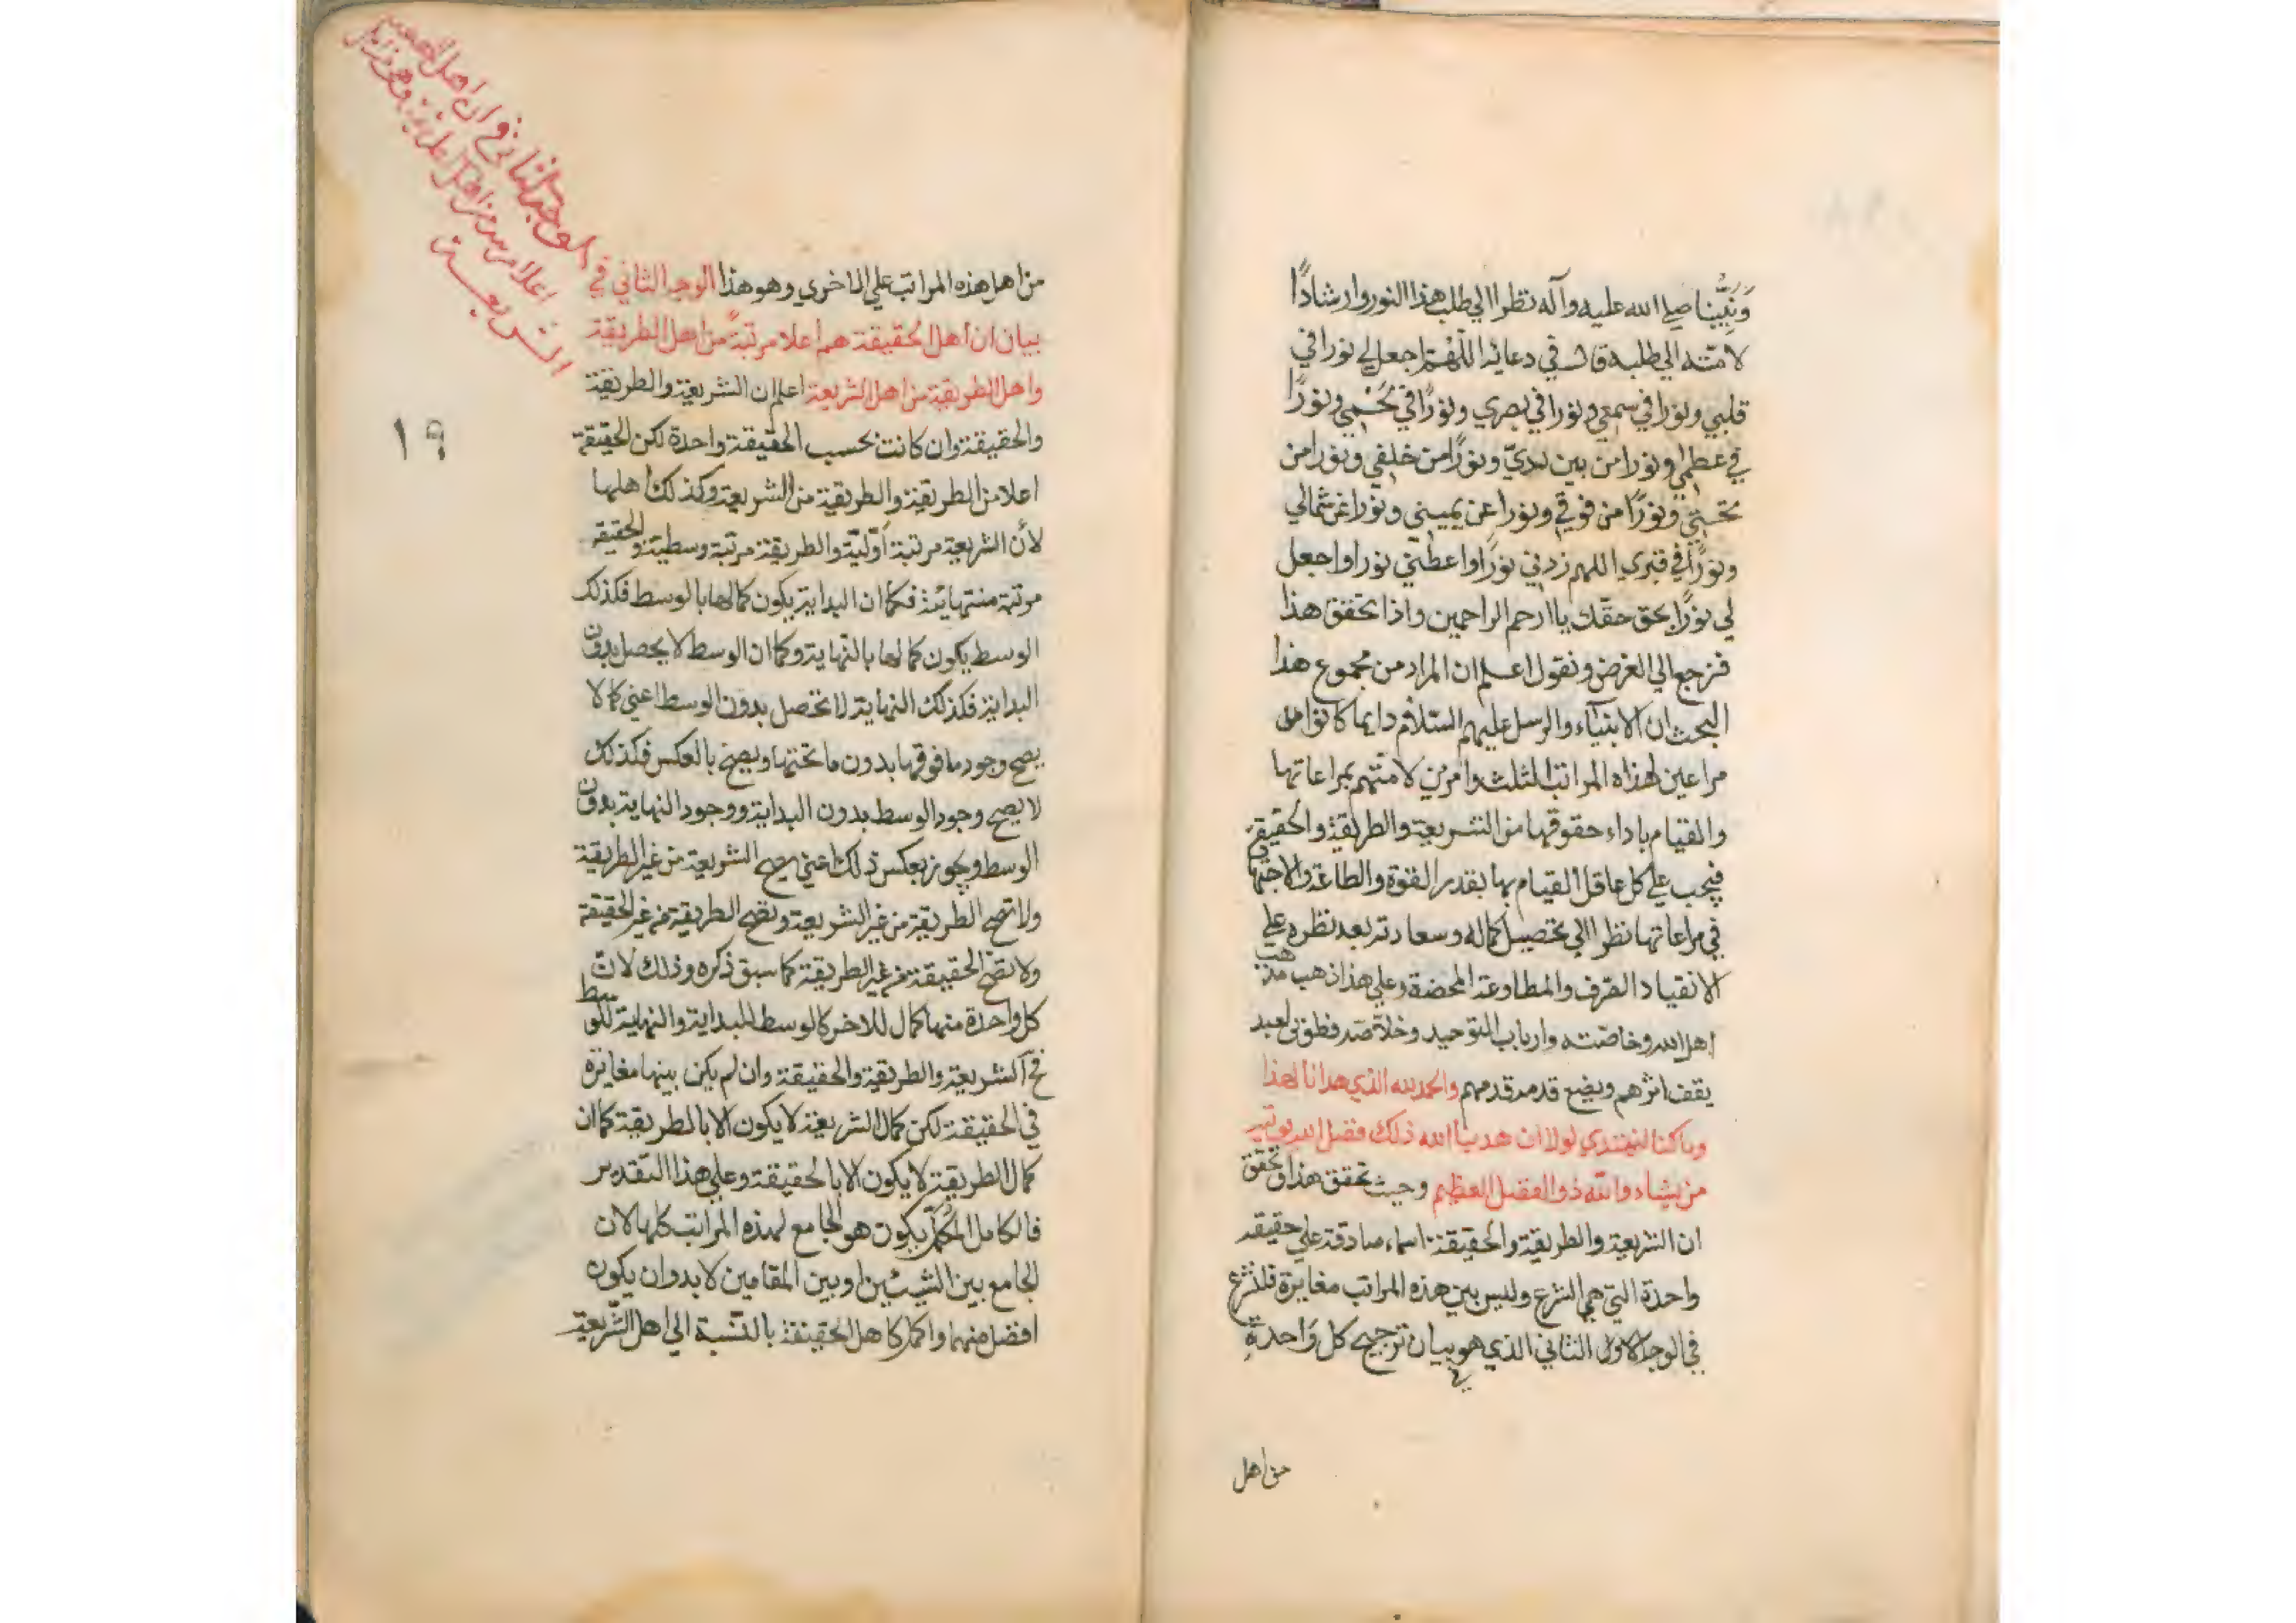 وَنَبِيُّنا صلى الله عليه وآله نظرا الى طلب هذا النور وارشاداً
لامّته الى طلبه قال في دعائه اللّهُمّ اجعل لي نورا في
قلبي ونورا في سمعي ونورا في بصري ونورًا في لَحْمي ونورًا
في عظمي ونورا من بين يديّ ونورًا من خلفي ونورا من
تحتي ونورًا من فوقي ونورا عن يميني ونورا عن شمالي
ونورًا في قبري اللهم زدني نورًا واعطني نورا واجعل
لي نورًا بحق حقّك يا ارحم الراحمين واذا تحقق هذا
فنرجع الي الغرض ونقول اعلم ان المراد من مجموع هذا
البحث ان الانبيآء والرسل عليهم السّلام دايما كانوا
مراعين لهذه المراتب الثلث وامرين لامتهم بمراعاتها
والقيام باداء حقوقها من الشريعة والطريقة والحقيقة
فيجب علي كل عاقل القيام بها بقدر القوة والطاعة والاجتهاد
في مراعاتها نظرا الي تحصيل كماله وسعادته بعد نظره علي
الانقياد الصّرف والمطاوعة المحضة وعلي هذا ذهب مذهب
اهل الله وخاصّته وارباب التوحيد وخلاصته فطوبى لعبد
يقف اثرهم ويضع قدمه قدمهم والحمد لله الذي هدانا لهذا
وما كنا لنهتدي لولا ان هدينا الله ذلك فضل الله يوتيه
من يشاء والله ذو الفضل العظيم وحيث تحقق هذا وتحقق
ان الشريعة والطريقة والحقيقة اسماء صادقة علي حقيقة
واحدة التي هي الشرع وليس بين هذه المراتب مغايرة فلنشرع
في الوجه الاول الثاني الذي هو بيان ترجيح كل وَاحدةٍ
في
من اهل
من اهل هذه المراتب علي الاخري وهو هذا الوجه الثاني في
بيان ان اهل الحقيقة هم اعلا مرتبةً من اهل الطريقة
واهل الطريقة من اهل الشريعة اعلم ان الشريعة والطريقة
والحقيقة وان كانت بحسب الحقيقة واحدة لكن الحقيقة
اعلا من الطريقة والطريقة من الشريعة وكذلك اهلها
لأن الشريعة مرتبة أوّليّة والطريقة مرتبة وسطية والحقيقة
مرتبة منتهائية فكما ان البداية يكون كمالها بالوسط فكذلك
الوسط يكون كمالها بالنهاية وكما ان الوسط لا يحصل بدون
البداية فكذلك النهاية لا تحصل بدون الوسط اعني كما لا
يصح وجود ما فوقها بدون ما تحتها ويصح بالعكس فكذلك
لا يصح وجود الوسط بدون البداية ووجود النهاية بدون
الوسط ويجوز بعكس ذلك اعني يصح الشريعة من غير الطريقة
ولا تصح الطريقة من غير الشريعة وتصح الطريقة من غير الحقيقة
ولا تصح الحقيقة من غير الطريقة كما سبق ذكره وذلك لانّ
كل واحدة منها كمال للاخر كالوسط للبداية والنهاية للوسط
فح الشريعة والطريقة والحقيقة وان لم يكن بينها مغايرة
في الحقيقة لكن كمال الشريعة لا يكون الا بالطريقة كما ان
كمال الطريقة لا يكون الا بالحقيقة وعلي هذا التقدير
فالكامل المُكمّل يكون هو الجامع لهذه المراتب كلها لان
الجامع بين الشيئين او بين المقامين لا بد وان يكون
افضل منهما واكمل كاهل الحقيقة بالنّسبة الي اهل الشّريعة
الوجه الثاني في ان اهل
الشريعة
١٩